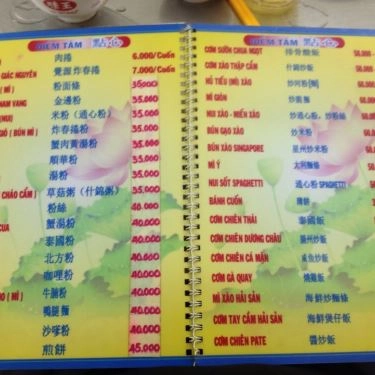 ĐIỂM TÂM 點心
肉捲 6.000/Cuốn
GIÁC NGUYÊN 覺源炸春捲 7.000/Cuốn
粉面條 35.000
NAM VANG 金邊粉 35.000
米粉 (通心粉) 35.000
炸春捲粉 35.000
蟹肉黃湯粉 35.000
順華粉 35.000
湯粉 35.000
CHÁO CẦM) 草菇粥 (什錦粥) 35.000
粉絲 40.000
CUA 蟹湯粉 40.000
泰國粉 40.000
北方粉 40.000
咖哩粉 40.000
牛腩粉 40.000
鴨腿麵 40.000
沙嗲粉 40.000
煎餅 45.000
ĐIỂM TÂM 點心
CƠM SƯỜN CHUA NGỌT 排骨酸飯 50.000
CƠM XÀO THẬP CẨM 什錦炒飯
HỦ TIẾU (MÌ) XÀO 炒河粉(麵)
MÌ GIÒN 炒脆麵
NUI XÀO - MIẾN XÀO 炒通心粉, 炒粉絲
BÚN GẠO XÀO 炒米粉
BÚN XÀO SINGAPORE 星州炒米粉
MÌ Ý 大利麵條
NUI SỐT SPAGHETTI 通心粉 SPAGHETTI
BÁNH CUỐN
CƠM CHIÊN THÁI 泰國飯
CƠM CHIÊN DƯƠNG CHÂU 揚州炒飯
CƠM CHIÊN CÁ MẶN 咸魚炒飯
CƠM GÀ QUAY 燒雞飯
MÌ XÀO HẢI SẢN 海鮮炒麵條
CƠM TAY CẦM HẢI SẢN 海鮮煲仔飯
CƠM CHIÊN PATE 醬炒飯